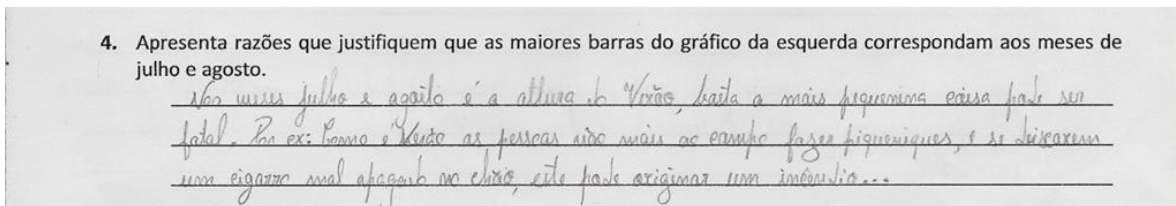 4. Apresenta razões que justifiquem que as maiores barras do gráfico da esquerda correspondam aos meses de
julho e agosto.
Nos meses julho e agosto é a altura do Verão, basta a mais pequenina coisa pode ser
fatal. Por ex: Como é Verão as pessoas vão mais ao campo fazer piqueniques, e se deixarem
um cigarro mal apagado no chão, este pode originar um incêndio...